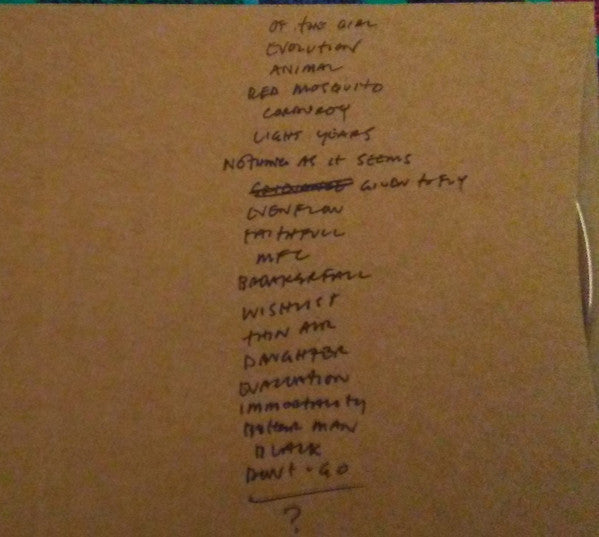 OF THE GIRL
EVOLUTION
ANIMAL
RED MOSQUITO
CORDUROY
LIGHT YEARS
NOTHING AS IT SEEMS
GRIEVANCE GIVEN TO FLY
EVENFLOW
FAITHFULL
MFC
BREAKERFALL
WISHLIST
THIN AIR
DAUGHTER
EVACUATION
IMMORTALITY
BETTER MAN
BLACK
DON'T · GO
?